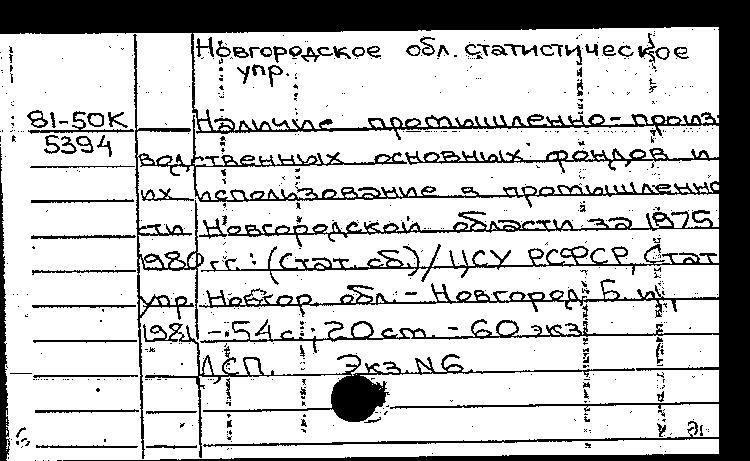 Новгородское обл. статистическое
упр.
81-50К Наличие промышленно-произ-
5394
водственных основных фондов и
их использование в промышленно
сти Новгородской области за 1975
1980 гг.: (Стат. сб.)/ЦСУ РСФСР, Стат
упр. Новгор. обл. - Новгород: Б. и.,
1981 - 54 с.; 20 см. - 60 экз.
ДСП. Экз. N6.